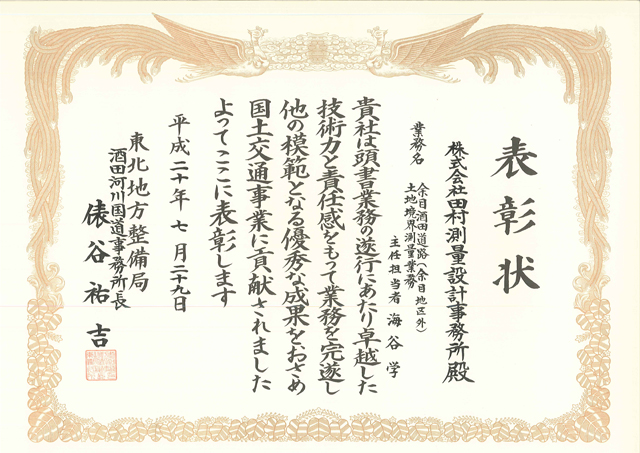 表彰状
株式会社田村測量設計事務所殿
業務名
余目酒田道路(余目地区外)
土地境界測量業務
主任担当者 海谷 学
貴社は頭書業務の遂行にあたり卓越した
技術力と責任感をもって業務を完遂し
他の模範となる優秀な成果をおさめ
国土交通事業に貢献されました
よってここに表彰します
平成二十年七月二十九日
東北地方整備局
酒田河川国道事務所長
俵谷祐吉